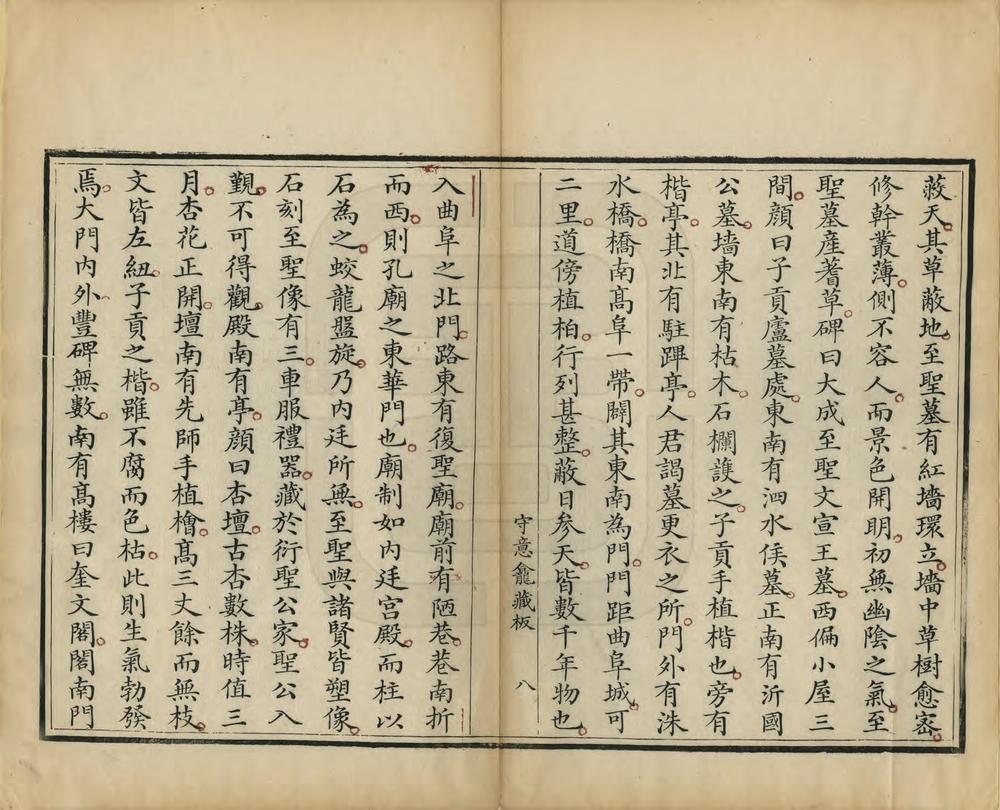 蔽天其草蔽地至聖墓有紅墻環立墻中草樹愈密
修幹叢薄側不容人而景色開明初無幽陰之氣至
聖墓産蓍草碑曰大成至聖文宣王墓西偏小屋三
間顔曰子貢廬墓處東南有泗水侯墓正南有沂國
公墓墻東南有枯木石欄護之子貢手植楷也旁有
楷亭其北有駐蹕亭人君謁墓更衣之所門外有洙
水橋橋南髙阜一帶闢其東南為門門距曲阜城可
二里道傍植柏行列甚整蔽日參天皆數千年物也
守意龕藏板 八
入曲阜之北門路東有復聖廟廟前有陋巷巷南折
而西則孔廟之東華門也廟制如内廷宫殿而柱以
石為之蛟龍盤旋乃内廷所無至聖與諸賢皆塑像
石刻至聖像有三車服禮器藏於衍聖公家聖公入
覲不可得觀殿南有亭顔曰杏壇古杏數株時值三
月杏花正開壇南有先師手植檜髙三丈餘而無枝
文皆左紐子貢之楷雖不腐而色枯此則生氣勃發
焉大門内外豐碑無數南有髙樓曰奎文閣閣南門